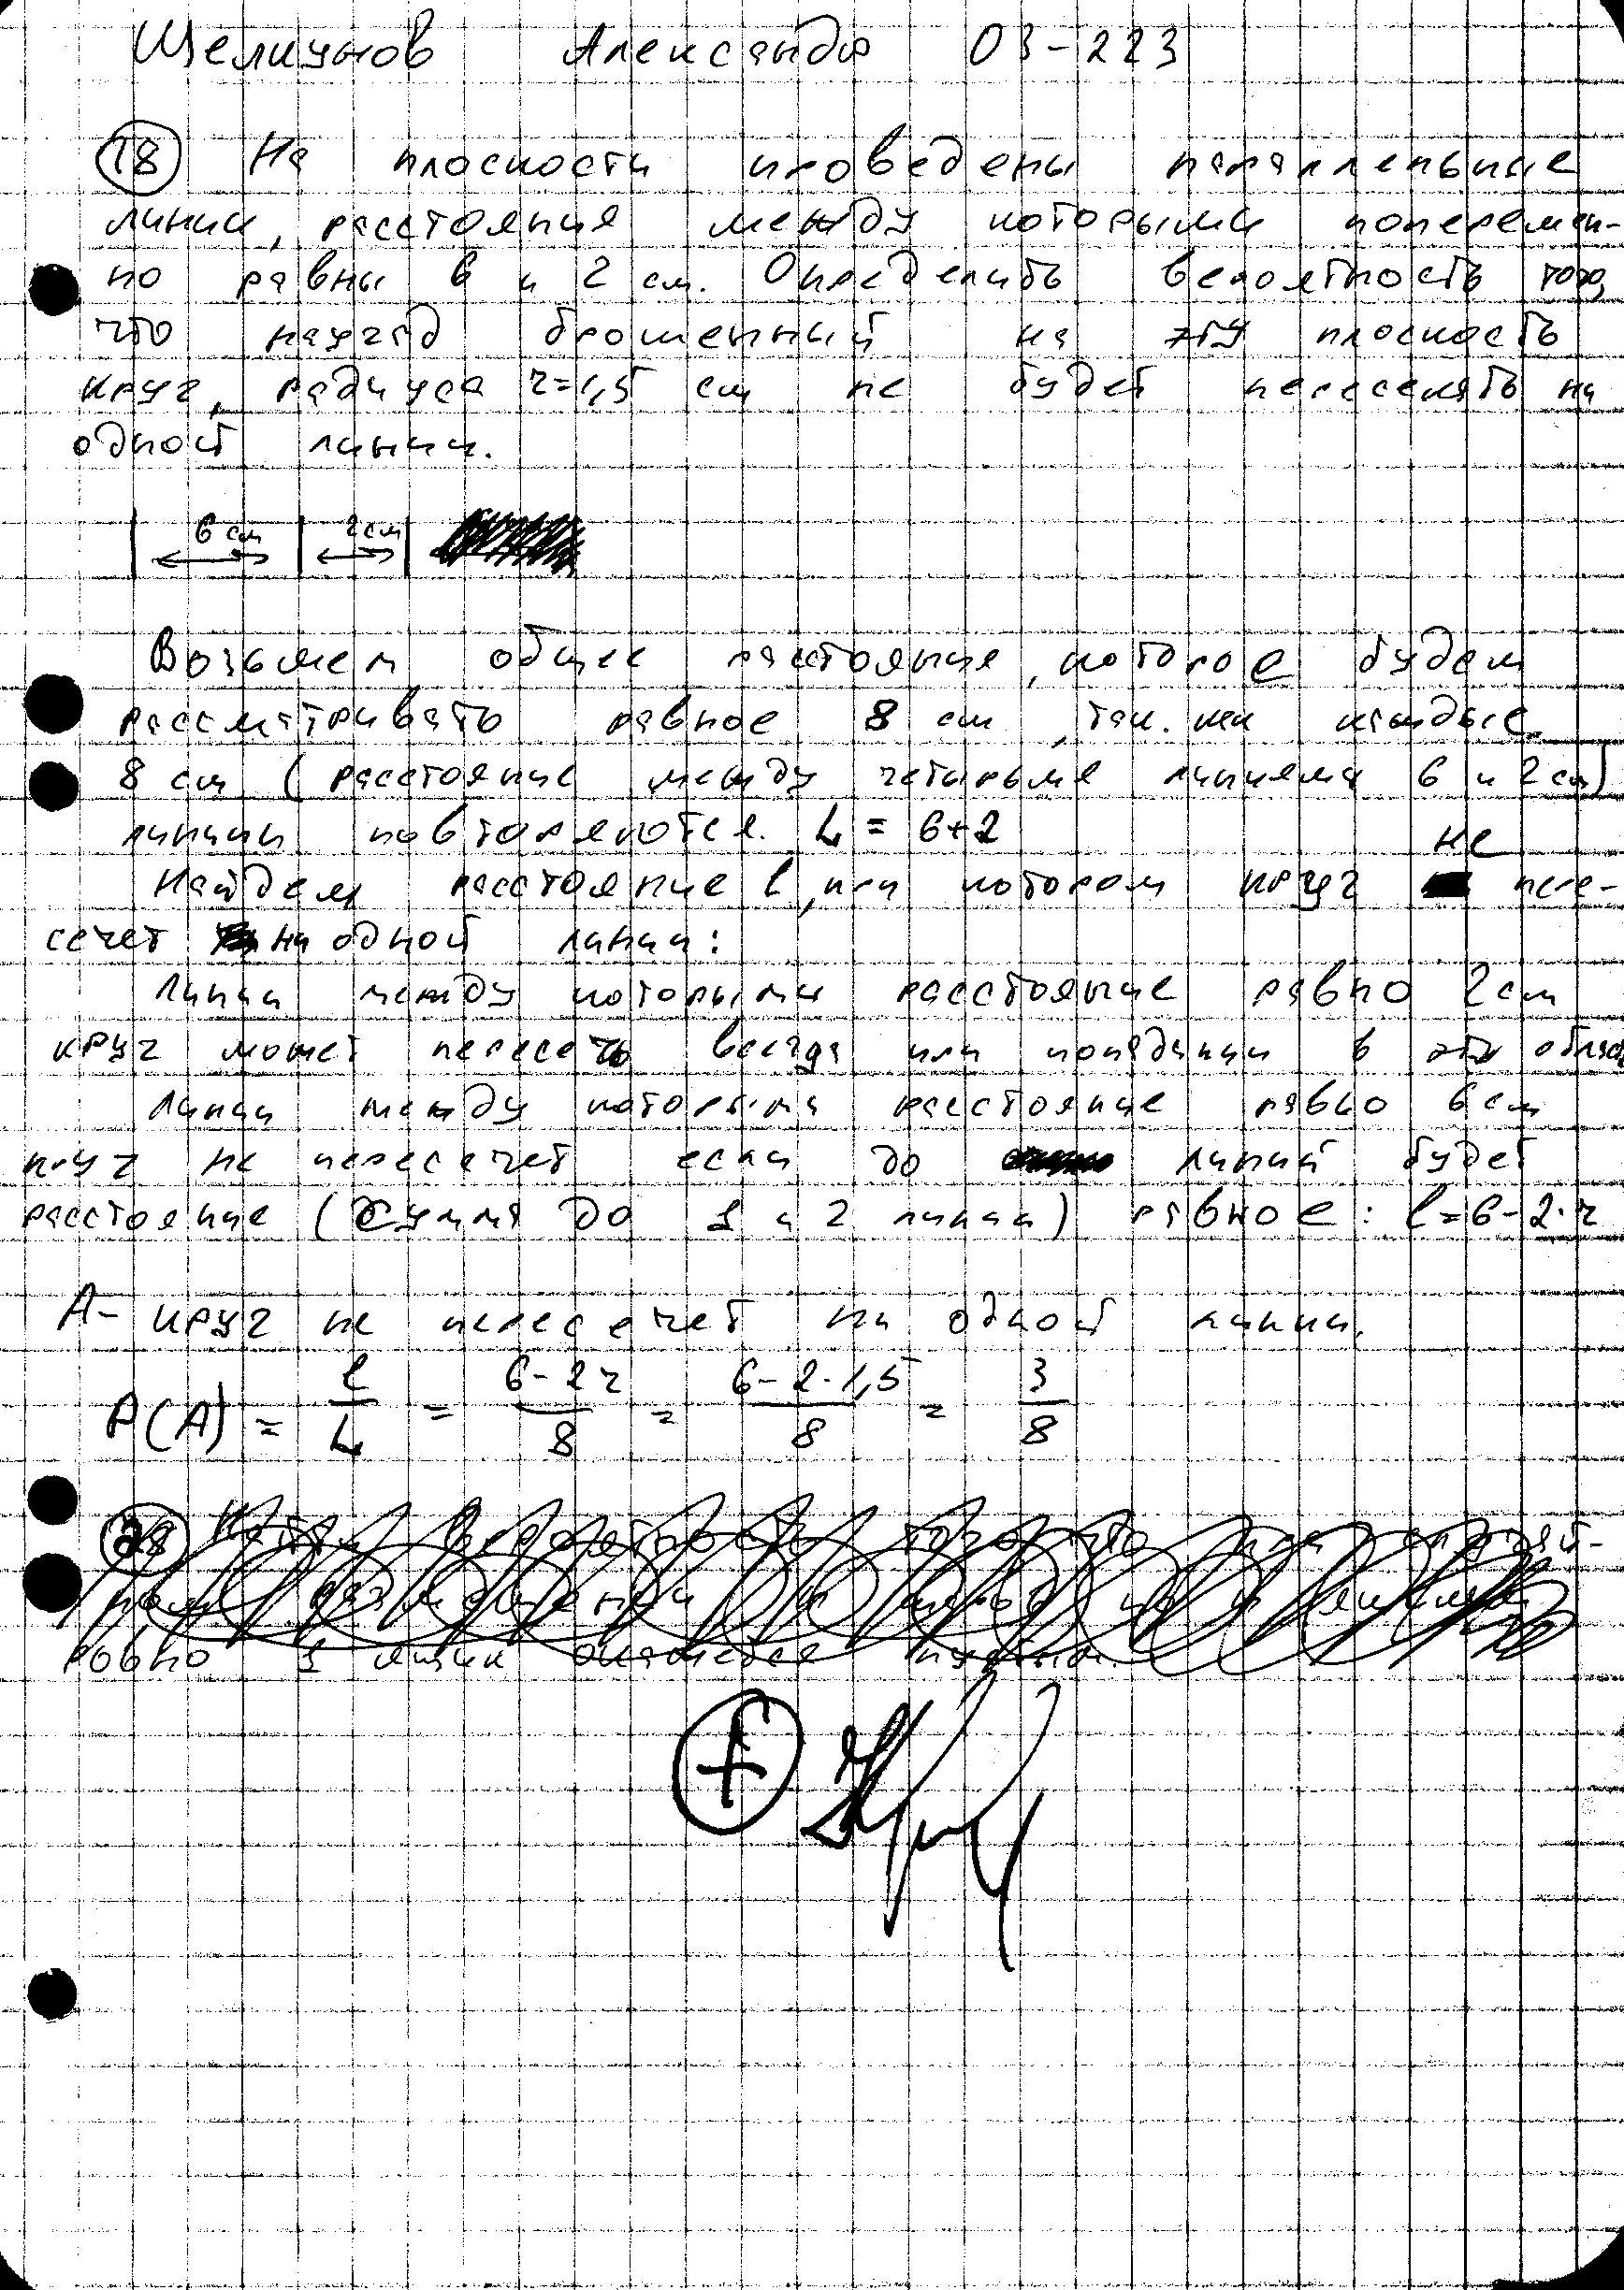 Щелкунов Александр 03-223
18 На плоскости проведены параллельные
линии, расстояния между которыми поперемен-
но равны 6 и 2 см. Определить вероятность того,
что наугад брошенный на эту плоскость
круг, радиуса r=1,5 см не будет пересекать ни
одной линии.
6 см 2 см
Возьмем общее расстояние, которое будем
рассматривать равное 8 см, так. как каждые
8 см (расстояние между четырьмя линиями 6 и 2 см)
линии повторяются. L = 6+2
Найдем расстояние l, при котором круг не пере-
сечет ни одной линии:
Линии между которыми расстояние равно 2 см
круг может пересечь всегда при попадании в эту область
Линии между которыми расстояние равно 6 см
круг не пересечет если до линий будет
расстояние (сумма до 1 и 2 линии) равное: l=6-2·r
A- круг не пересечет ни одной линии.
P(A) = l/L = 6-2r/8 = 6-2·1,5/8 = 3/8
ровно 3
+